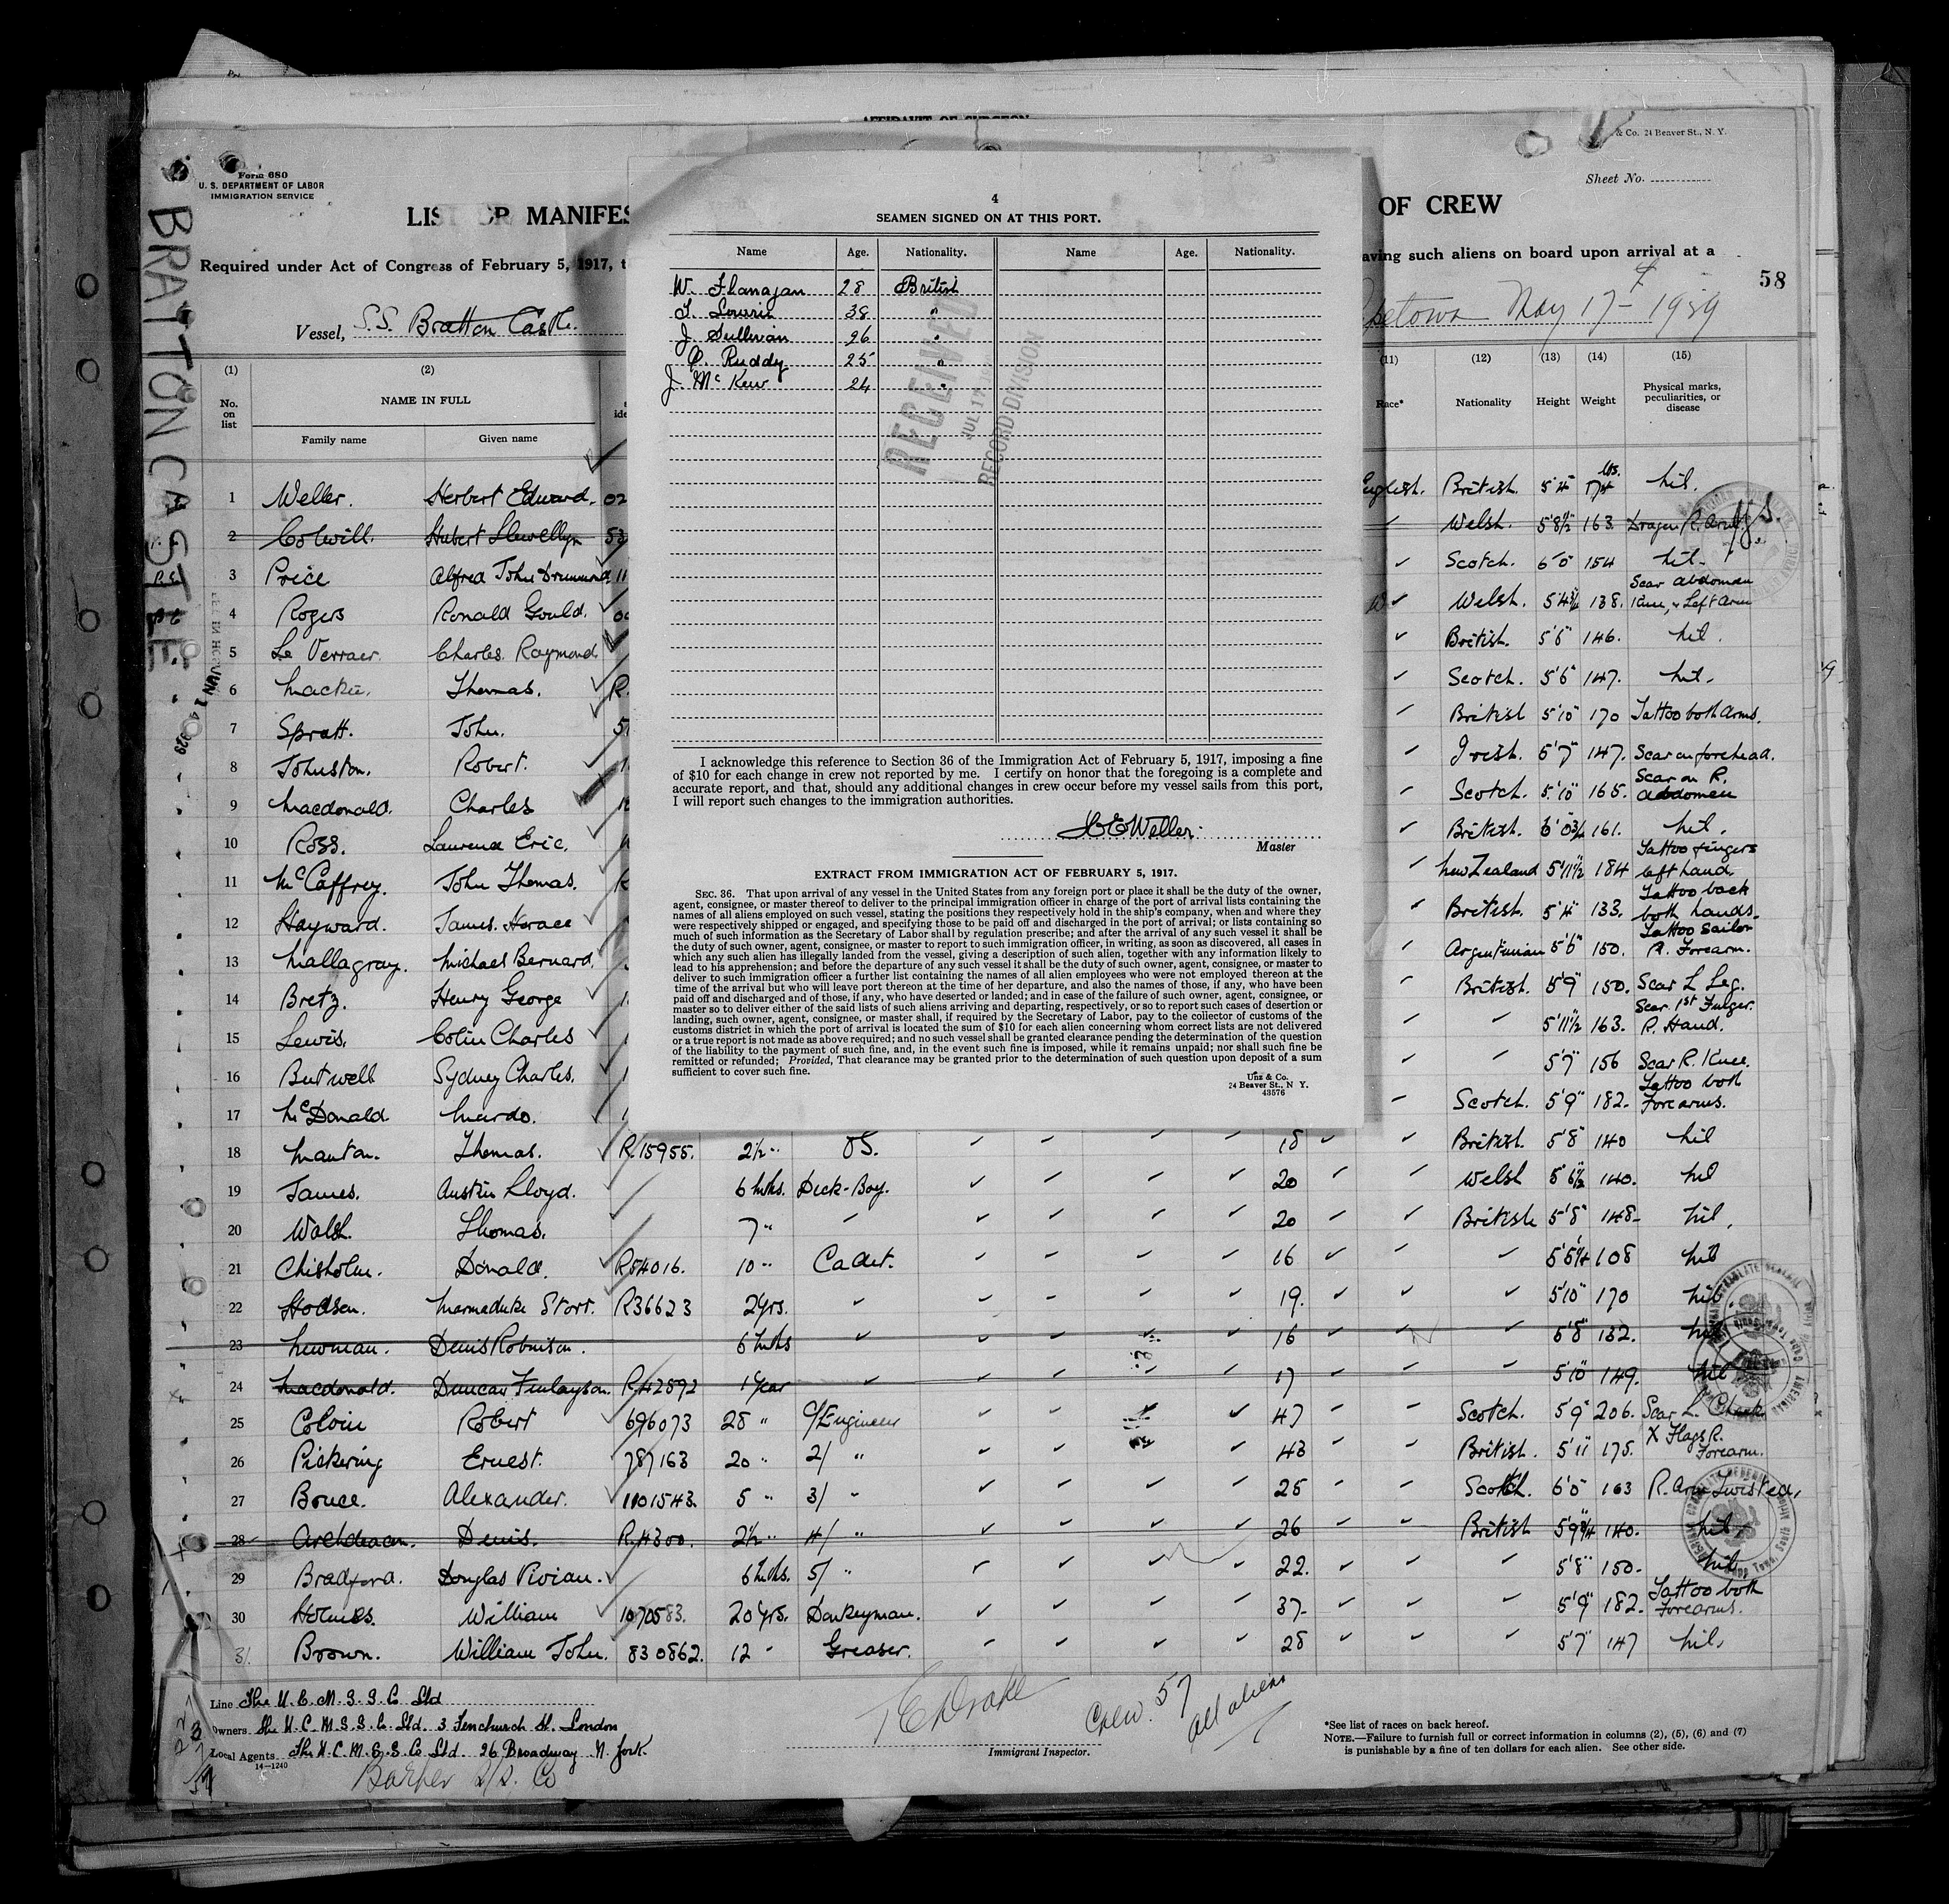 AFFIDAVIT OF SURGEON
& Co. 24 Beaver St., N. Y.
Form 680
U. S. DEPARTMENT OF LABOR
IMMIGRATION SERVICE
Sheet No.
LIST OR MANIFES
OF CREW
Required under Act of Congress of February 5, 1917, t
aving such aliens on board upon arrival at a
58
Vessel, S.S. Bratton Castle.
petown May 17 - 1939
BRATTON CASTLE
4
SEAMEN SIGNED ON AT THIS PORT.
Name Age. Nationality. Name Age. Nationality.
W. Flanagan 28 British
T. Lowrie 38 "
J. Sullivan 26 "
P. Ruddy 25 "
J. McKew 24 "
RECEIVED
JUL 17
RECORD DIVISION
I acknowledge this reference to Section 36 of the Immigration Act of February 5, 1917, imposing a fine
of $10 for each change in crew not reported by me. I certify on honor that the foregoing is a complete and
accurate report, and that, should any additional changes in crew occur before my vessel sails from this port,
I will report such changes to the immigration authorities.
H E Weller.
Master
EXTRACT FROM IMMIGRATION ACT OF FEBRUARY 5, 1917.
SEC. 36. That upon arrival of any vessel in the United States from any foreign port or place it shall be the duty of the owner,
agent, consignee, or master thereof to deliver to the principal immigration officer in charge of the port of arrival lists containing the
names of all aliens employed on such vessel, stating the positions they respectively hold in the ship's company, when and where they
were respectively shipped or engaged, and specifying those to be paid off and discharged in the port of arrival; or lists containing so
much of such information as the Secretary of Labor shall by regulation prescribe; and after the arrival of any such vessel it shall be
the duty of such owner, agent, consignee, or master to report to such immigration officer, in writing, as soon as discovered, all cases in
which any such alien has illegally landed from the vessel, giving a description of such alien, together with any information likely to
lead to his apprehension; and before the departure of any such vessel it shall be the duty of such owner, agent, consignee, or master to
deliver to such immigration officer a further list containing the names of all alien employees who were not employed thereon at the
time of the arrival but who will leave port thereon at the time of her departure, and also the names of those, if any, who have been
paid off and discharged and of those, if any, who have deserted or landed; and in case of the failure of such owner, agent, consignee, or
master so to deliver either of the said lists of such aliens arriving and departing, respectively, or so to report such cases of desertion or
landing, such owner, agent, consignee, or master shall, if required by the Secretary of Labor, pay to the collector of customs of the
customs district in which the port of arrival is located the sum of $10 for each alien concerning whom correct lists are not delivered
or a true report is not made as above required; and no such vessel shall be granted clearance pending the determination of the question
of the liability to the payment of such fine, and, in the event such fine is imposed, while it remains unpaid; nor shall such fine be
remitted or refunded; Provided, That clearance may be granted prior to the determination of such question upon deposit of a sum
sufficient to cover such fine.
Unz & Co.
24 Beaver St., N Y.
43576
(1) (2) (11) (12) (13) (14) (15)
No. on list NAME IN FULL Race* Nationality Height Weight Physical marks, peculiarities, or disease
Family name Given name
1 Weller. Herbert Edward. 02 English. British. 5'4" lbs. 174 Nil.
2 Colwill. Hubert Llewellyn 53 Welsh. 5'8½" 163 Dragon R. Arm.
3 Price Alfred John Drummond 11 Scotch. 6'0 154 Nil.
4 Rogers Ronald Gould. Welsh. 5'4¾ 138. Scar abdomen Knee, & Left Arm
5 Le Verraer. Charles Raymond British. 5'6" 146. Nil.
6 Mackie. Thomas. R. Scotch. 5'6" 147. Nil.
7 Spratt. John. British 5'10" 170 Tattoo both arms.
8 Johnston. Robert. Irish. 5'7" 147. Scar on forehead.
9 Macdonald. Charles Scotch. 5'10" 165. Scar on R. abdomen
10 Ross. Laurence Eric. British. 6'0¾ 161. Nil.
11 McCaffrey. John Thomas. New Zealand 5'11½ 184 Tattoo fingers left hand.
12 Hayward. James Horace British. 5'4" 133. Tattoo back both hands.
13 Mallagray. Michael Bernard. Argentinian 5'6" 150. Tattoo Sailor R. Forearm.
14 Bretz. Henry George British. 5'9" 150. Scar L Leg.
15 Lewis. Colin Charles " 5'11½ 163. Scar 1st Finger. R. Hand.
16 Butwell Sydney Charles. 5'7" 156 Scar R. Knee.
17 McDonald Murdo. Scotch. 5'9" 182. Tattoo both Forearms.
18 Manton. Thomas. R.15955. 2½ " OS. 18 British. 5'8" 140 Nil
19 James. Austin Lloyd. 6 Mths. Deck-Boy. 20 Welsh 5'6½ 140. Nil
20 Walsh. Thomas. 7 " 20 British 5'8" 148. Nil.
21 Chisholm. Donald. R54016. 10 " Cadet. 16 5'5¼ 108 Nil
22 Hodson. Marmaduke Storr. R36623 2 Yrs. 19. 5'10" 170 Nil.
23 Newman. Denis Robinson. 6 Mths 16 5'8" 132. Nil
24 Macdonald. Duncan Finlayson. R.42892 1 Year 17 5'10" 149. Nil
25 Colvin Robert 696073 28 " C/Engineer 47 Scotch. 5'9" 206. Scar L. Cheek
26 Pickering Ernest. 787163 20 " 2/ " 43 British. 5'11 175. X Flags R. Forearm.
27 Bruce. Alexander. 1101543. 5 " 3/ " 25 Scotch. 6'0" 163 R. Arm Twisted.
28 Archdeacon. Denis. R.4300. 2½ " 4/ " 26 British 5'9¾ 140. Nil
29 Bradford. Douglas Vivian. 6 Mths. 5/ " 22. 5'8" 150. Nil
30 Holmes. William 1070583. 20 Yrs. Donkeyman. 37. 5'9" 182. Tattoo both Forearms.
31 Brown. William John. 830862. 12 " Greaser. 28 5'7" 147 Nil.
Line The U. C. M. S. S. Co Ltd
Owners The U. C. M. S. S. Co. Ltd. 3 Fenchurch St. London
Local Agents The U. C. M. S. S. Co Ltd. 26 Broadway N. York.
14—1240
Barber S/S. Co
T E Drake
Immigrant Inspector.
Crew. 57
all aliens
*See list of races on back hereof.
NOTE.—Failure to furnish full or correct information in columns (2), (5), (6) and (7)
is punishable by a fine of ten dollars for each alien. See other side.